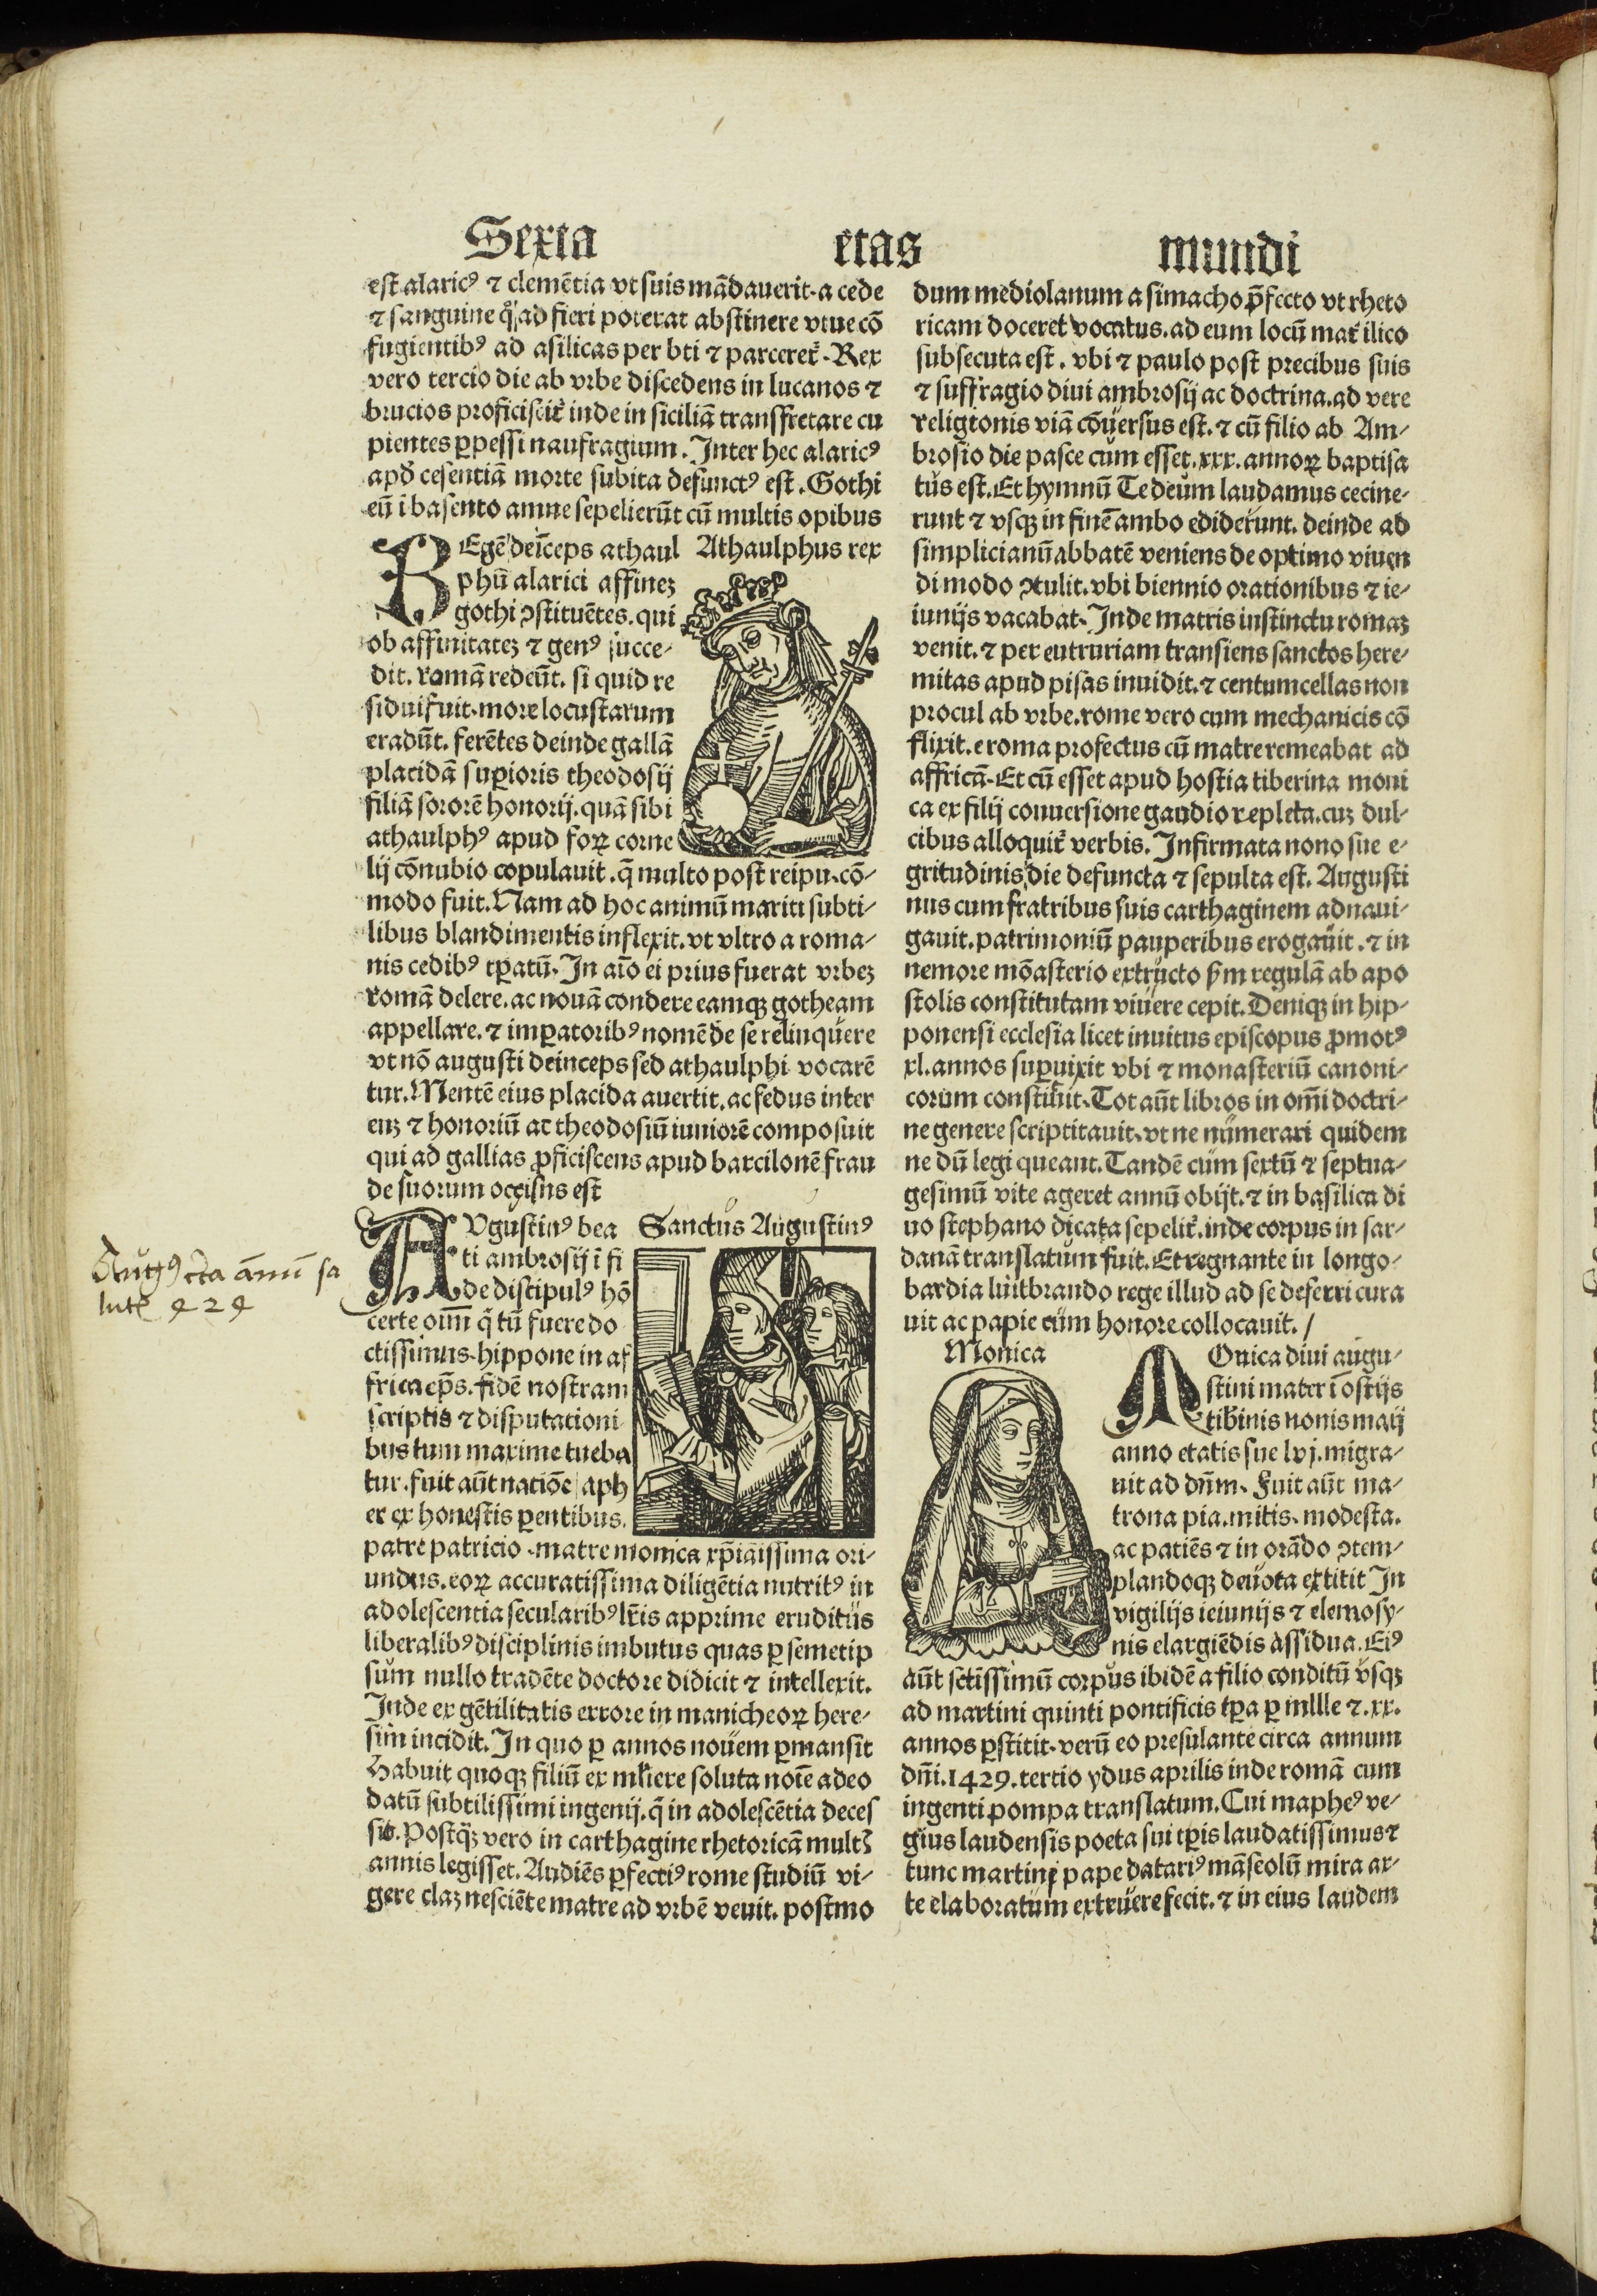 Sexta etas mundi
est alaricꝰ ⁊ clemētia vt suis mādauerit. a cede
⁊ sanguine qͦad fieri poterat abstinere vtue cō
fugientibꝰ ad asilicas per bti ⁊ parceret᷑. Rex
vero tercio die ab vrbe discedens in lucanos ⁊
brucios proficiscit᷑ inde in siciliā transfretare cu
pientes ꝑpessi naufragium. Inter hec alaricꝰ
apd̓ cesentiā morte subita defunctꝰ est. Gothi
eū i basento amne sepelierūt cū multis opibus
REgē deīceps athaul
phū alarici affinez
gothi ꝯstituētes. qui
ob affinitatez ⁊ genꝰ succe-
dit. romā redeūt. si quid re
sidui fuit. more locustarum
eradūt. ferētes deinde gallā
placidā suꝑioris theodosij
filiā sororē honorij. quā sibi
athaulphꝰ apud foꝝ corne
Athaulphus rex
lij cōnubio copulauit. q̄ multo post reipu. cō-
modo fuit. Nam ad hoc animū mariti subti-
libus blandimentis inflexit. vt vltro a roma-
nis cedibꝰ tꝑatū. In aīo ei prius fuerat vrbez
romā delere. ac nouā condere eamqꝫ gotheam
appellare. ⁊ imꝑatoribꝰ nomē de se relinquere
vt nō augusti deinceps sed athaulphi vocarē
tur. Mentē eius placida auertit. ac fedus inter
euz ⁊ honoriū ac theodosiū iuniorē composuit
qui ad gallias ꝓficiscens apud barcilonē frau
de suorum occisus est
AUgustinꝰ bea
ti ambrosij ī fi
de discipulꝰ hō
certe oīm q̄ tū fuere do
ctissimus. hippone in af
frica ep̄s. fidē nostram
scriptis ⁊ disputationi
bus tum maxime tueba
tur. fuit aūt natiōe aph
er ex honestis ꝑentibus.
Sanctus Augustinꝰ
Augꝰ c̄ca annū sa
lutꝭ 424
patre patricio. matre monica xp̄ianissima ori-
undus. eoꝝ accuratissima diligētia nutritꝰ in
adolescentia secularibꝰ lr̄is apprime eruditus
liberalibꝰ disciplinis imbutus quas ꝑ semetip
sum nullo tradēte doctore didicit ⁊ intellexit.
Inde ex gētilitatis errore in manicheoꝝ here-
sim incidit. In quo ꝑ annos nouem ꝑmansit
Habuit quoqꝫ filiū ex mliere soluta noīe adeo
datū subtilissimi ingenij. q̄ in adolescētia deces
sit. Postqꝫ vero in carthagine rhetoricā multꝭ
annis legisset. Audiēs ꝑfectiꝰ rome studiū vi-
gere claz nesciēte matre ad vrbē venit. postmo
dum mediolanum a simacho p̄fecto vt rheto
ricam doceret vocatus. ad eum locū mat᷑ ilico
subsecuta est. vbi ⁊ paulo post precibus suis
⁊ suffragio diui ambrosij ac doctrina. ad vere
religionis viā cōuersus est. ⁊ cū filio ab Am-
brosio die pasce cum esset. xxx. annoꝝ baptisa
tus est. Et hymnū Te deum laudamus cecine-
runt ⁊ vsqꝫ in finē ambo ediderunt. deinde ad
simplicianū abbatē veniens de optimo viuen
di modo ꝯtulit. vbi biennio orationibus ⁊ ie-
iunijs vacabat. Inde matris instinctu romaz
venit. ⁊ per eutruriam transiens sanctos here-
mitas apud pisas inuidit. ⁊ centumcellas non
procul ab vrbe. rome vero cum mechanicis cō
flixit. e roma profectus cū matre remeabat ad
affricā. Et cū esset apud hostia tiberina moni
ca ex filij conuersione gaudio repleta. cuz dul-
cibus alloquit᷑ verbis. Infirmata nono sue e-
gritudinis die defuncta ⁊ sepulta est. Augusti
nus cum fratribus suis carthaginem adnaui-
gauit. patrimoniū pauperibus erogauit. ⁊ in
nemore mōasterio extructo ẜm regulā ab apo
stolis constitutam viuere cepit. Deniqꝫ in hip-
ponensi ecclesia licet inuitus episcopus ꝓmotꝰ
xl. annos suꝑuixit vbi ⁊ monasteriū canoni-
corum constituit. Tot aūt libros in om̄i doctri-
ne genere scriptitauit. vt ne numerari quidem
ne dū legi queant. Tandē cum sextū ⁊ septua-
gesimū vite ageret annū obijt. ⁊ in basilica di
uo stephano dicata sepelit᷑. inde corpus in sar-
danā translatum fuit. Et regnante in longo-
bardia luitbrando rege illud ad se deferri cura
uit ac papie cum honore collocauit. /
Monica
MOnica diui augu-
stini mater ī ostijs
tib̓inis nonis maij
anno etatis sue lvj. migra-
uit ad dn̄m. Fuit aūt ma-
trona pia. mitis. modesta.
ac patiēs ⁊ in orādo ꝯtem-
plandoqꝫ deuota extitit In
vigilijs ieiunijs ⁊ elemosy-
nis elargiēdis assidua. Eiꝰ
aūt sctīssimū corpus ibidē a filio conditū vsqꝫ
ad martini quinti pontificis tꝑa ꝑ mllle ⁊. xx.
annos ꝑstitit. verū eo presulante circa annum
dn̄i. 1429. tertio ydus aprilis inde romā cum
ingenti pompa translatum. Cui mapheꝰ ve-
gius laudensis poeta sui tꝑis laudatissimus ⁊
tunc martini pape datariꝰ māseolū mira ar-
te elaboratum extruere fecit. ⁊ in eius laudem